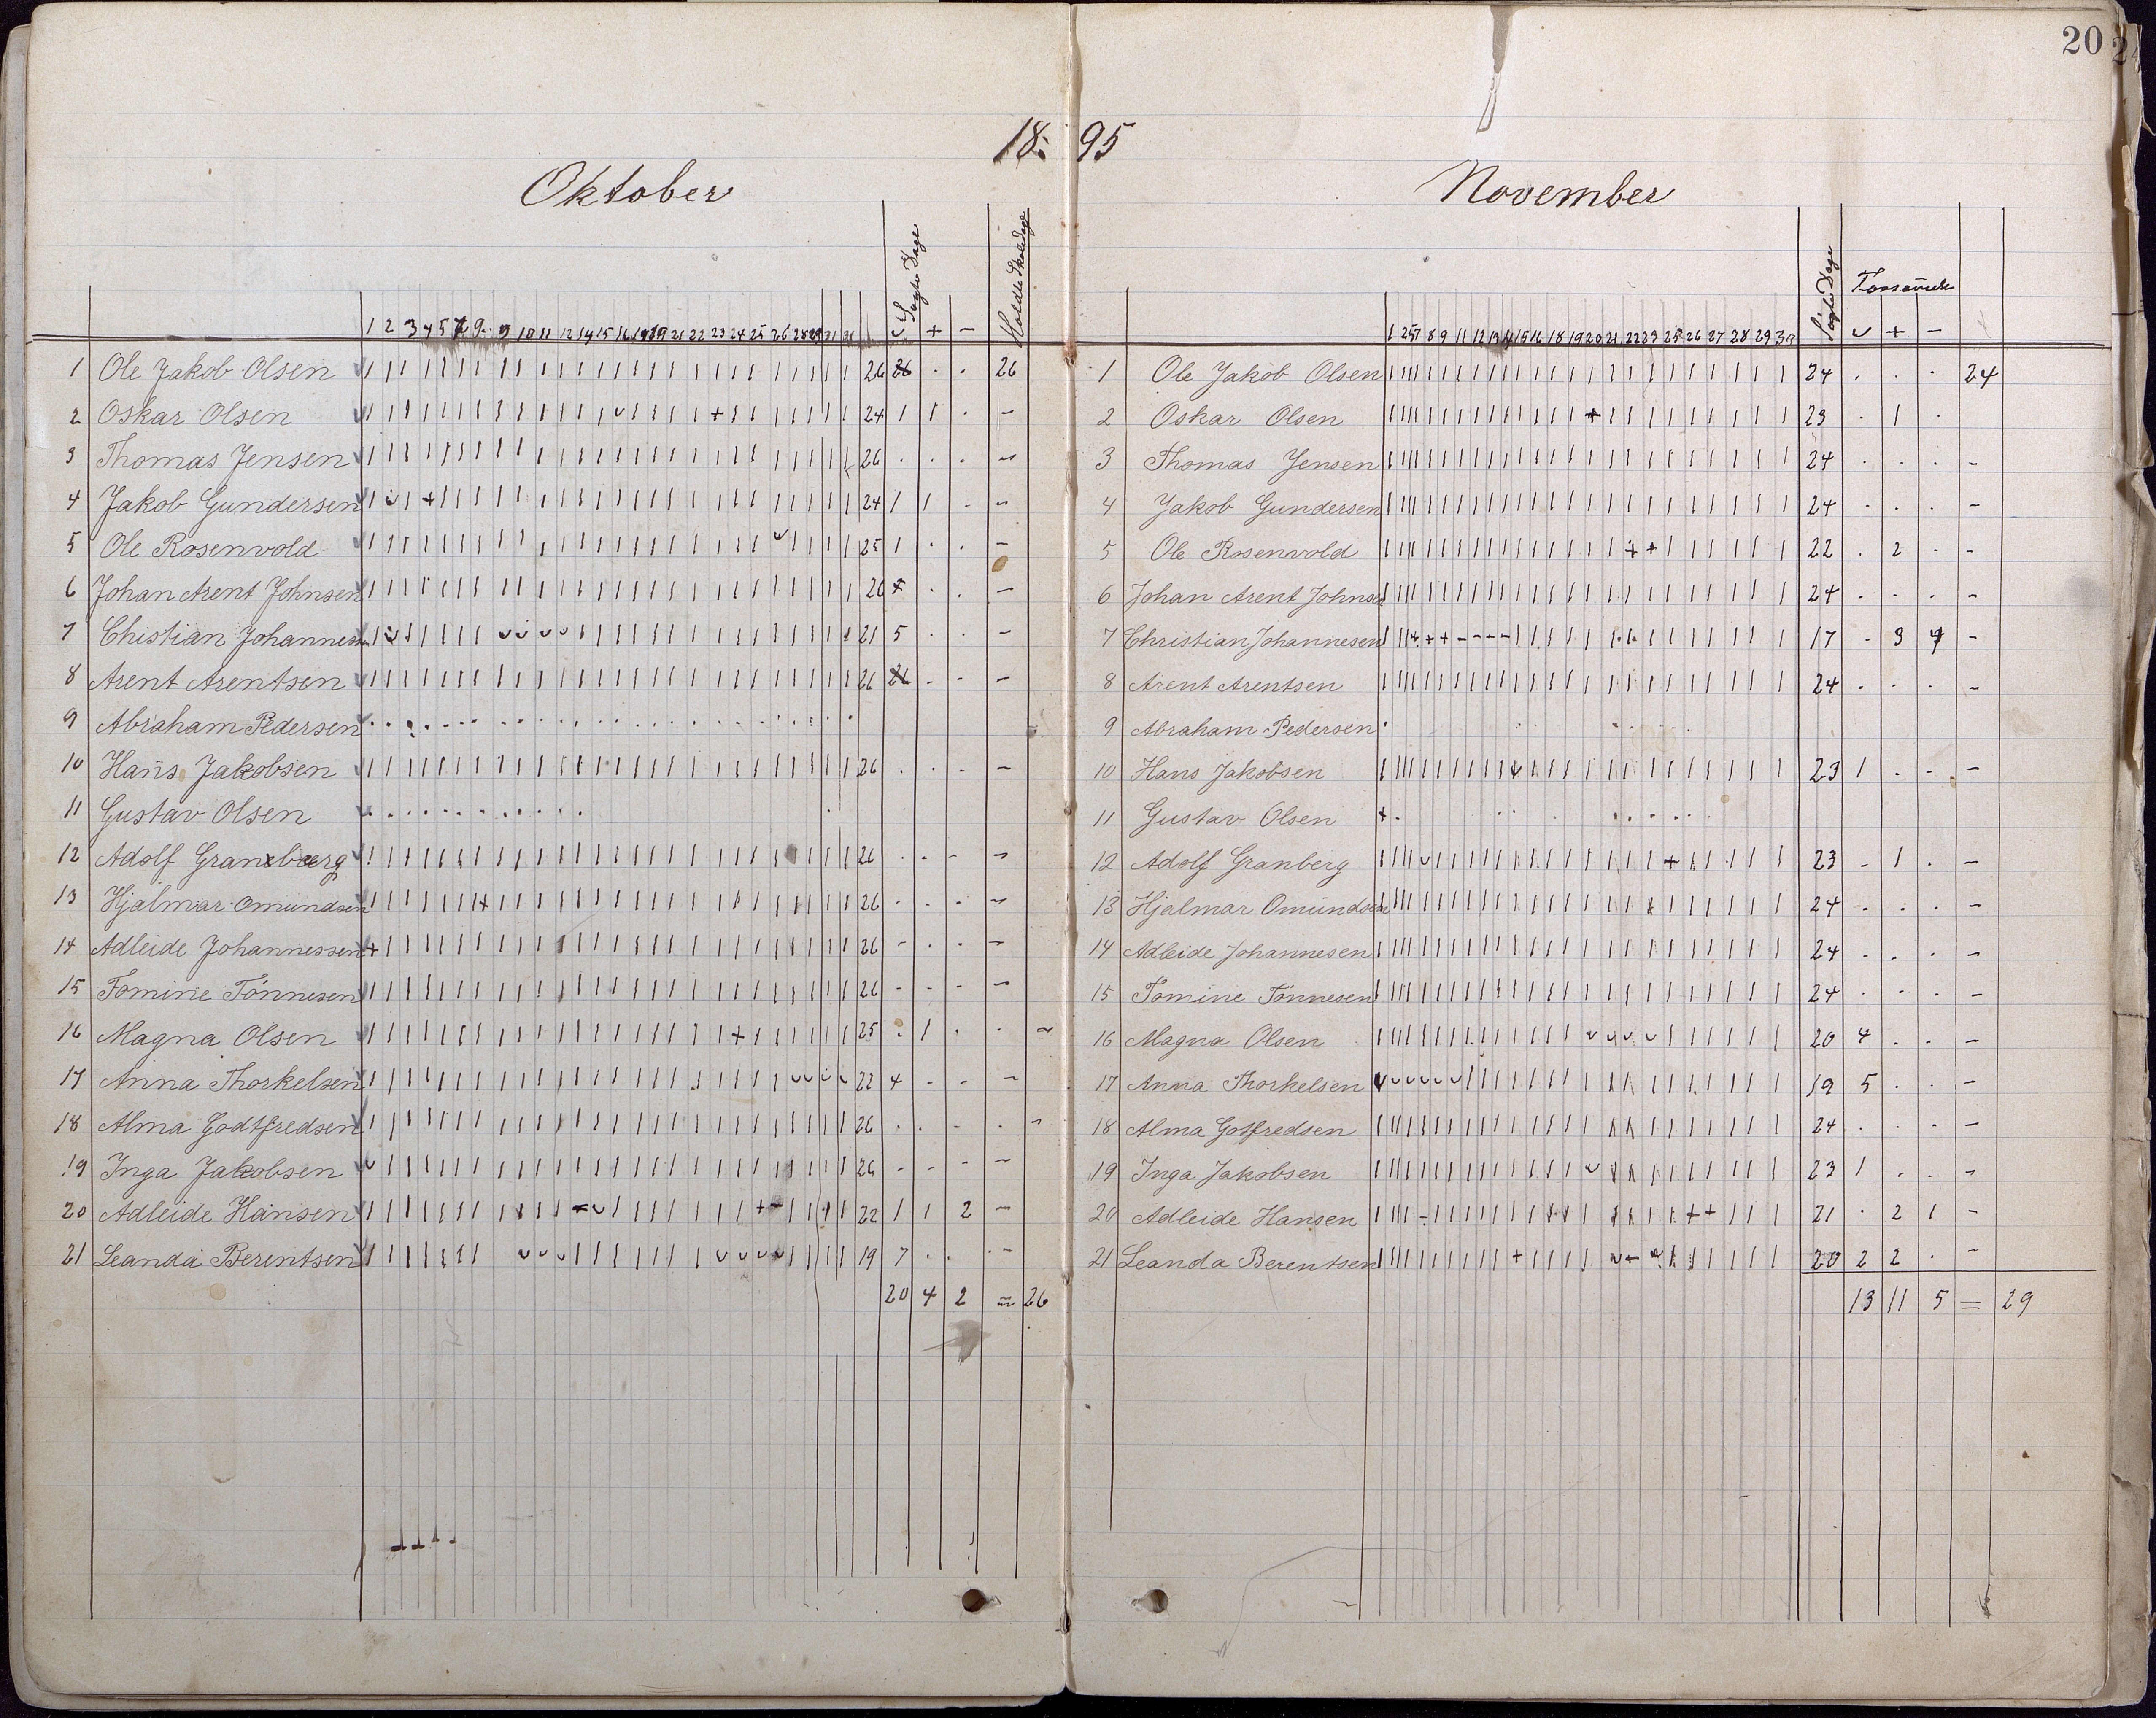 20
18 95
Oktober
Søgte Dage
Holdte Skoledage
1 2 3 4 5 7 9 9 10 11 12 14 15 16 18 19 21 22 23 24 25 26 28 29 31 v + -
1 Ole Jakob Olsen 26 . . 26
2 Oskar Olsen 24 1 1 . -
3 Thomas Jensen 26 . . . -
4 Jakob Gundersen 24 1 1 - -
5 Ole Rosenvold 25 1 . . -
6 Johan Arent Johnsen 26 . . -
7 Chistian Johannesen 21 5 . . -
8 Arent Arentsen 26 - - -
9 Abraham Pedersen
10 Hans Jakobsen 26 . . - -
11 Gustav Olsen
12 Adolf Granberg 26 . - - -
13 Hjalmar Omundsen 26 - - - -
14 Adleide Johannessen 26 - . - -
15 Tomine Tönnesen 26 - - - -
16 Magna Olsen 25 . 1 . . -
17 Anna Thorkelsen 22 4 - - -
18 Alma Godtfredsen 26 . . - . -
19 Inga Jakobsen 26 - - - -
20 Adleide Hansen 22 1 1 2 -
21 Leanda Berentsen 19 7 . . -
20 4 2 = 26
November
Søgte Dage
Forsømte
1 2 5 7 8 9 11 12 13 14 15 16 18 19 20 21 22 23 25 26 27 28 29 30 v + -
1 Ole Jakob Olsen 24 . . . 24
2 Oskar Olsen 23 . 1 .
3 Thomas Jensen 24 . . . -
4 Jakob Gundersen 24 . . . -
5 Ole Rosenvold 22 . 2 . -
6 Johan Arent Johnsen 24 . . . -
7 Christian Johannesen 17 - 3 4 -
8 Arent Arentsen 24 . . . -
9 Abraham Pedersen
10 Hans Jakobsen 23 1 . . -
11 Gustav Olsen
12 Adolf Granberg 23 - 1 . -
13 Hjalmar Omundsen 24 . . . -
14 Adleide Johannesen 24 . . . -
15 Tomine Tønnesen 24 . . . -
16 Magna Olsen 20 4 . . -
17 Anna Thorkelsen 19 5 . . -
18 Alma Gotfredsen 24 . . . -
19 Inga Jakobsen 23 1 . . -
20 Adleide Hansen 21 . 2 1 -
21 Leanda Berentsen 20 2 2 . -
13 11 5 = 29